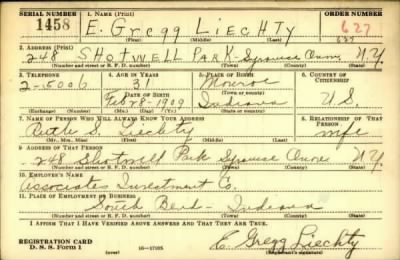 SERIAL NUMBER 1. NAME (Print) ORDER NUMBER
1458 E. Gregg Liechty 627
(First) (Middle) (Last) 627
2. ADDRESS (Print)
248 SHOTWELL PARK N.Y.
(Number and street or R. F. D. number) (Town) (County) (State)
3. TELEPHONE 4. AGE IN YEARS 5. PLACE OF BIRTH 6. COUNTRY OF CITIZENSHIP
2-5006 31 Monroe
DATE OF BIRTH (Town or county)
Feb 28-1909 Indiana U.S.
(Exchange) (Number) (Mo.) (Day) (Yr.) (State or country)
7. NAME OF PERSON WHO WILL ALWAYS KNOW YOUR ADDRESS 8. RELATIONSHIP OF THAT PERSON
Ruth S. Liechty wife
(Mr., Mrs., Miss) (First) (Middle) (Last)
9. ADDRESS OF THAT PERSON
248 Shotwell Park N.Y.
(Number and street or R. F. D. number) (Town) (County) (State)
10. EMPLOYER'S NAME
Associates Investment Co.
11. PLACE OF EMPLOYMENT OR BUSINESS
South Bend - Indiana
(Number and street or R. F. D. number) (Town) (County) (State)
I AFFIRM THAT I HAVE VERIFIED ABOVE ANSWERS AND THAT THEY ARE TRUE.
REGISTRATION CARD
D. S. S. Form 1 (over) 16-17105 E. Gregg Liechty
(Registrant's signature)